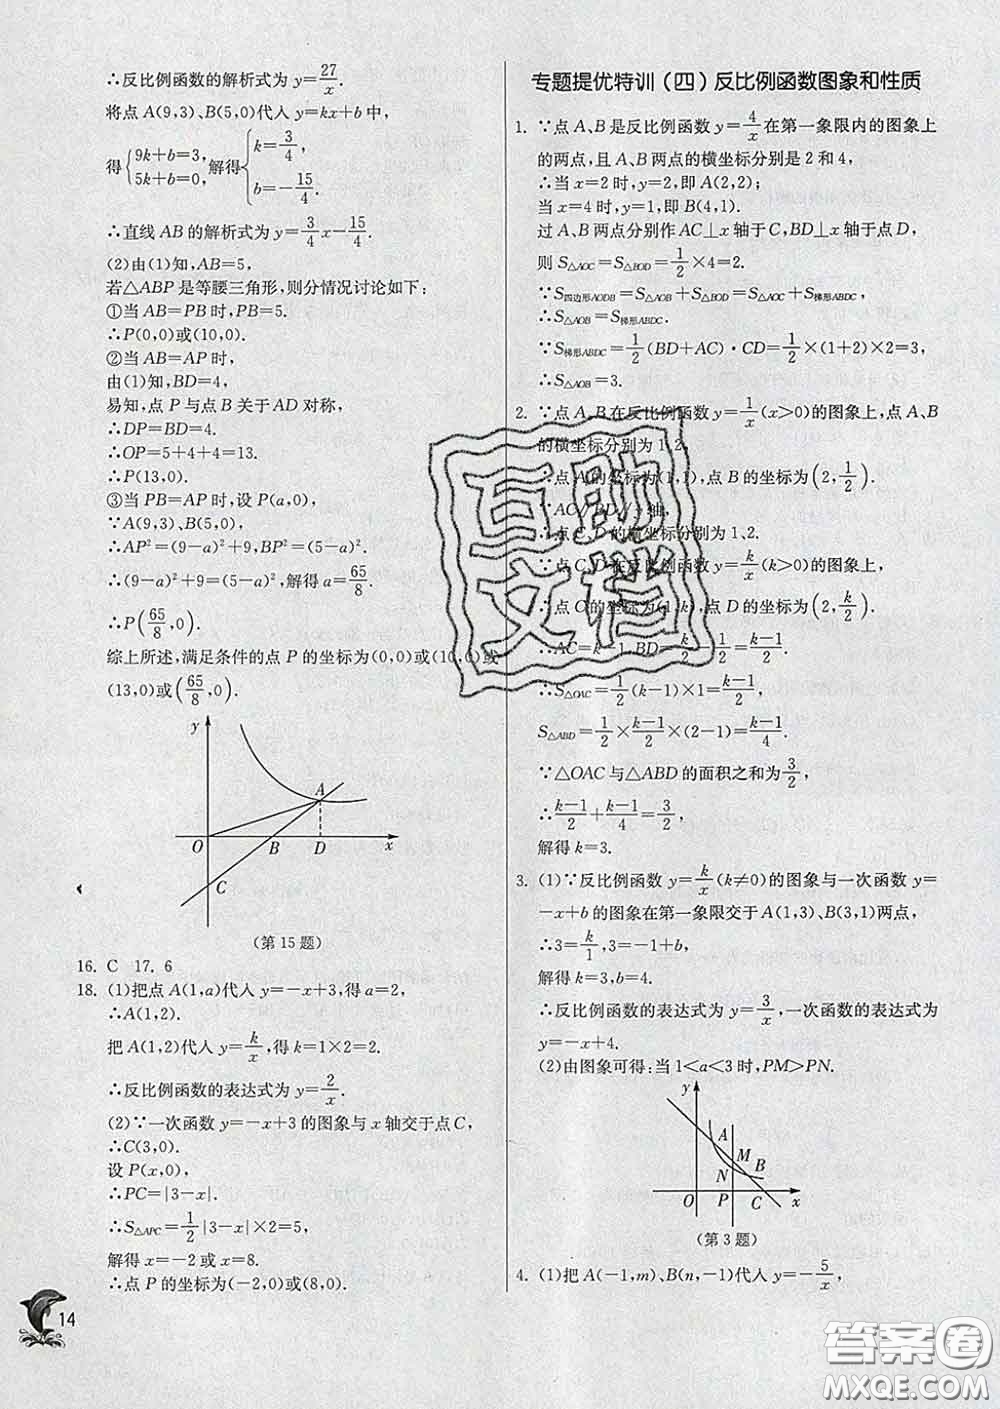 ∴反比例函数的解析式为 y=27/x.
将点 A(9,3)、B(5,0)代入 y=kx+b 中,
得{9k+b=3, 5k+b=0, 解得{k=3/4, b=-15/4.
∴直线 AB 的解析式为 y=3/4x-15/4.
(2)由(1)知,AB=5,
若△ABP 是等腰三角形,则分情况讨论如下:
①当 AB=PB 时,PB=5.
∴P(0,0)或(10,0).
②当 AB=AP 时,
由(1)知,BD=4,
易知,点 P 与点 B 关于 AD 对称,
∴DP=BD=4.
∴OP=5+4+4=13.
∴P(13,0).
③当 PB=AP 时,设 P(a,0),
∵A(9,3)、B(5,0),
∴AP²=(9-a)²+9,BP²=(5-a)².
∴(9-a)²+9=(5-a)²,解得 a=65/8.
∴P(65/8,0).
综上所述,满足条件的点 P 的坐标为(0,0)或(10,0)或
(13,0)或(65/8,0).
y
A
O B D x
C
(第 15 题)
16. C 17. 6
18. (1)把点 A(1,a)代入 y=-x+3,得 a=2,
∴A(1,2).
把 A(1,2)代入 y=k/x,得 k=1×2=2.
∴反比例函数的表达式为 y=2/x.
(2)∵一次函数 y=-x+3 的图象与 x 轴交于点 C,
∴C(3,0).
设 P(x,0),
∴PC=|3-x|.
∴S△APC=1/2|3-x|×2=5,
解得 x=-2 或 x=8.
∴点 P 的坐标为(-2,0)或(8,0).
14
专题提优特训(四) 反比例函数图象和性质
1. ∵点 A、B 是反比例函数 y=4/x 在第一象限内的图象上
的两点,且 A、B 两点的横坐标分别是 2 和 4,
∴当 x=2 时,y=2,即 A(2,2);
当 x=4 时,y=1,即 B(4,1).
过 A、B 两点分别作 AC⊥x 轴于 C,BD⊥x 轴于点 D,
则 S△AOC=S△BOD=1/2×4=2.
∵S四边形AODB=S△AOB+S△BOD=S△AOC+S梯形ABDC,
∴S△AOB=S梯形ABDC.
∵S梯形ABDC=1/2(BD+AC)·CD=1/2×(1+2)×2=3,
∴S△AOB=3.
2. ∵点 A、B 在反比例函数 y=1/x(x>0)的图象上,点 A、B
的横坐标分别为 1、2.
∴点 A 的坐标为(1,1),点 B 的坐标为(2,1/2).
∵AC//BD//y 轴,
∴点 C、D 的横坐标分别为 1、2.
∵点 C、D 在反比例函数 y=k/x(k>0)的图象上,
∴点 C 的坐标为(1,k),点 D 的坐标为(2,k/2).
∴AC=k-1,BD=k/2-1/2=k-1/2.
∴S△OAC=1/2(k-1)×1=k-1/2,
S△ABD=1/2×k-1/2×(2-1)=k-1/4.
∵△OAC 与△ABD 的面积之和为3/2,
∴k-1/2+k-1/4=3/2,
解得 k=3.
3. (1)∵反比例函数 y=k/x(k≠0)的图象与一次函数 y=
-x+b 的图象在第一象限交于 A(1,3)、B(3,1)两点,
∴3=k/1,3=-1+b,
解得 k=3,b=4.
∴反比例函数的表达式为 y=3/x,一次函数的表达式为
y=-x+4.
(2)由图象可得:当 1<a<3 时,PM>PN.
y
A
M
N B
O P C x
(第 3 题)
4. (1)把 A(-1,m)、B(n,-1)代入 y=-5/x,
互助
文档
答案圈
MXQE.COM